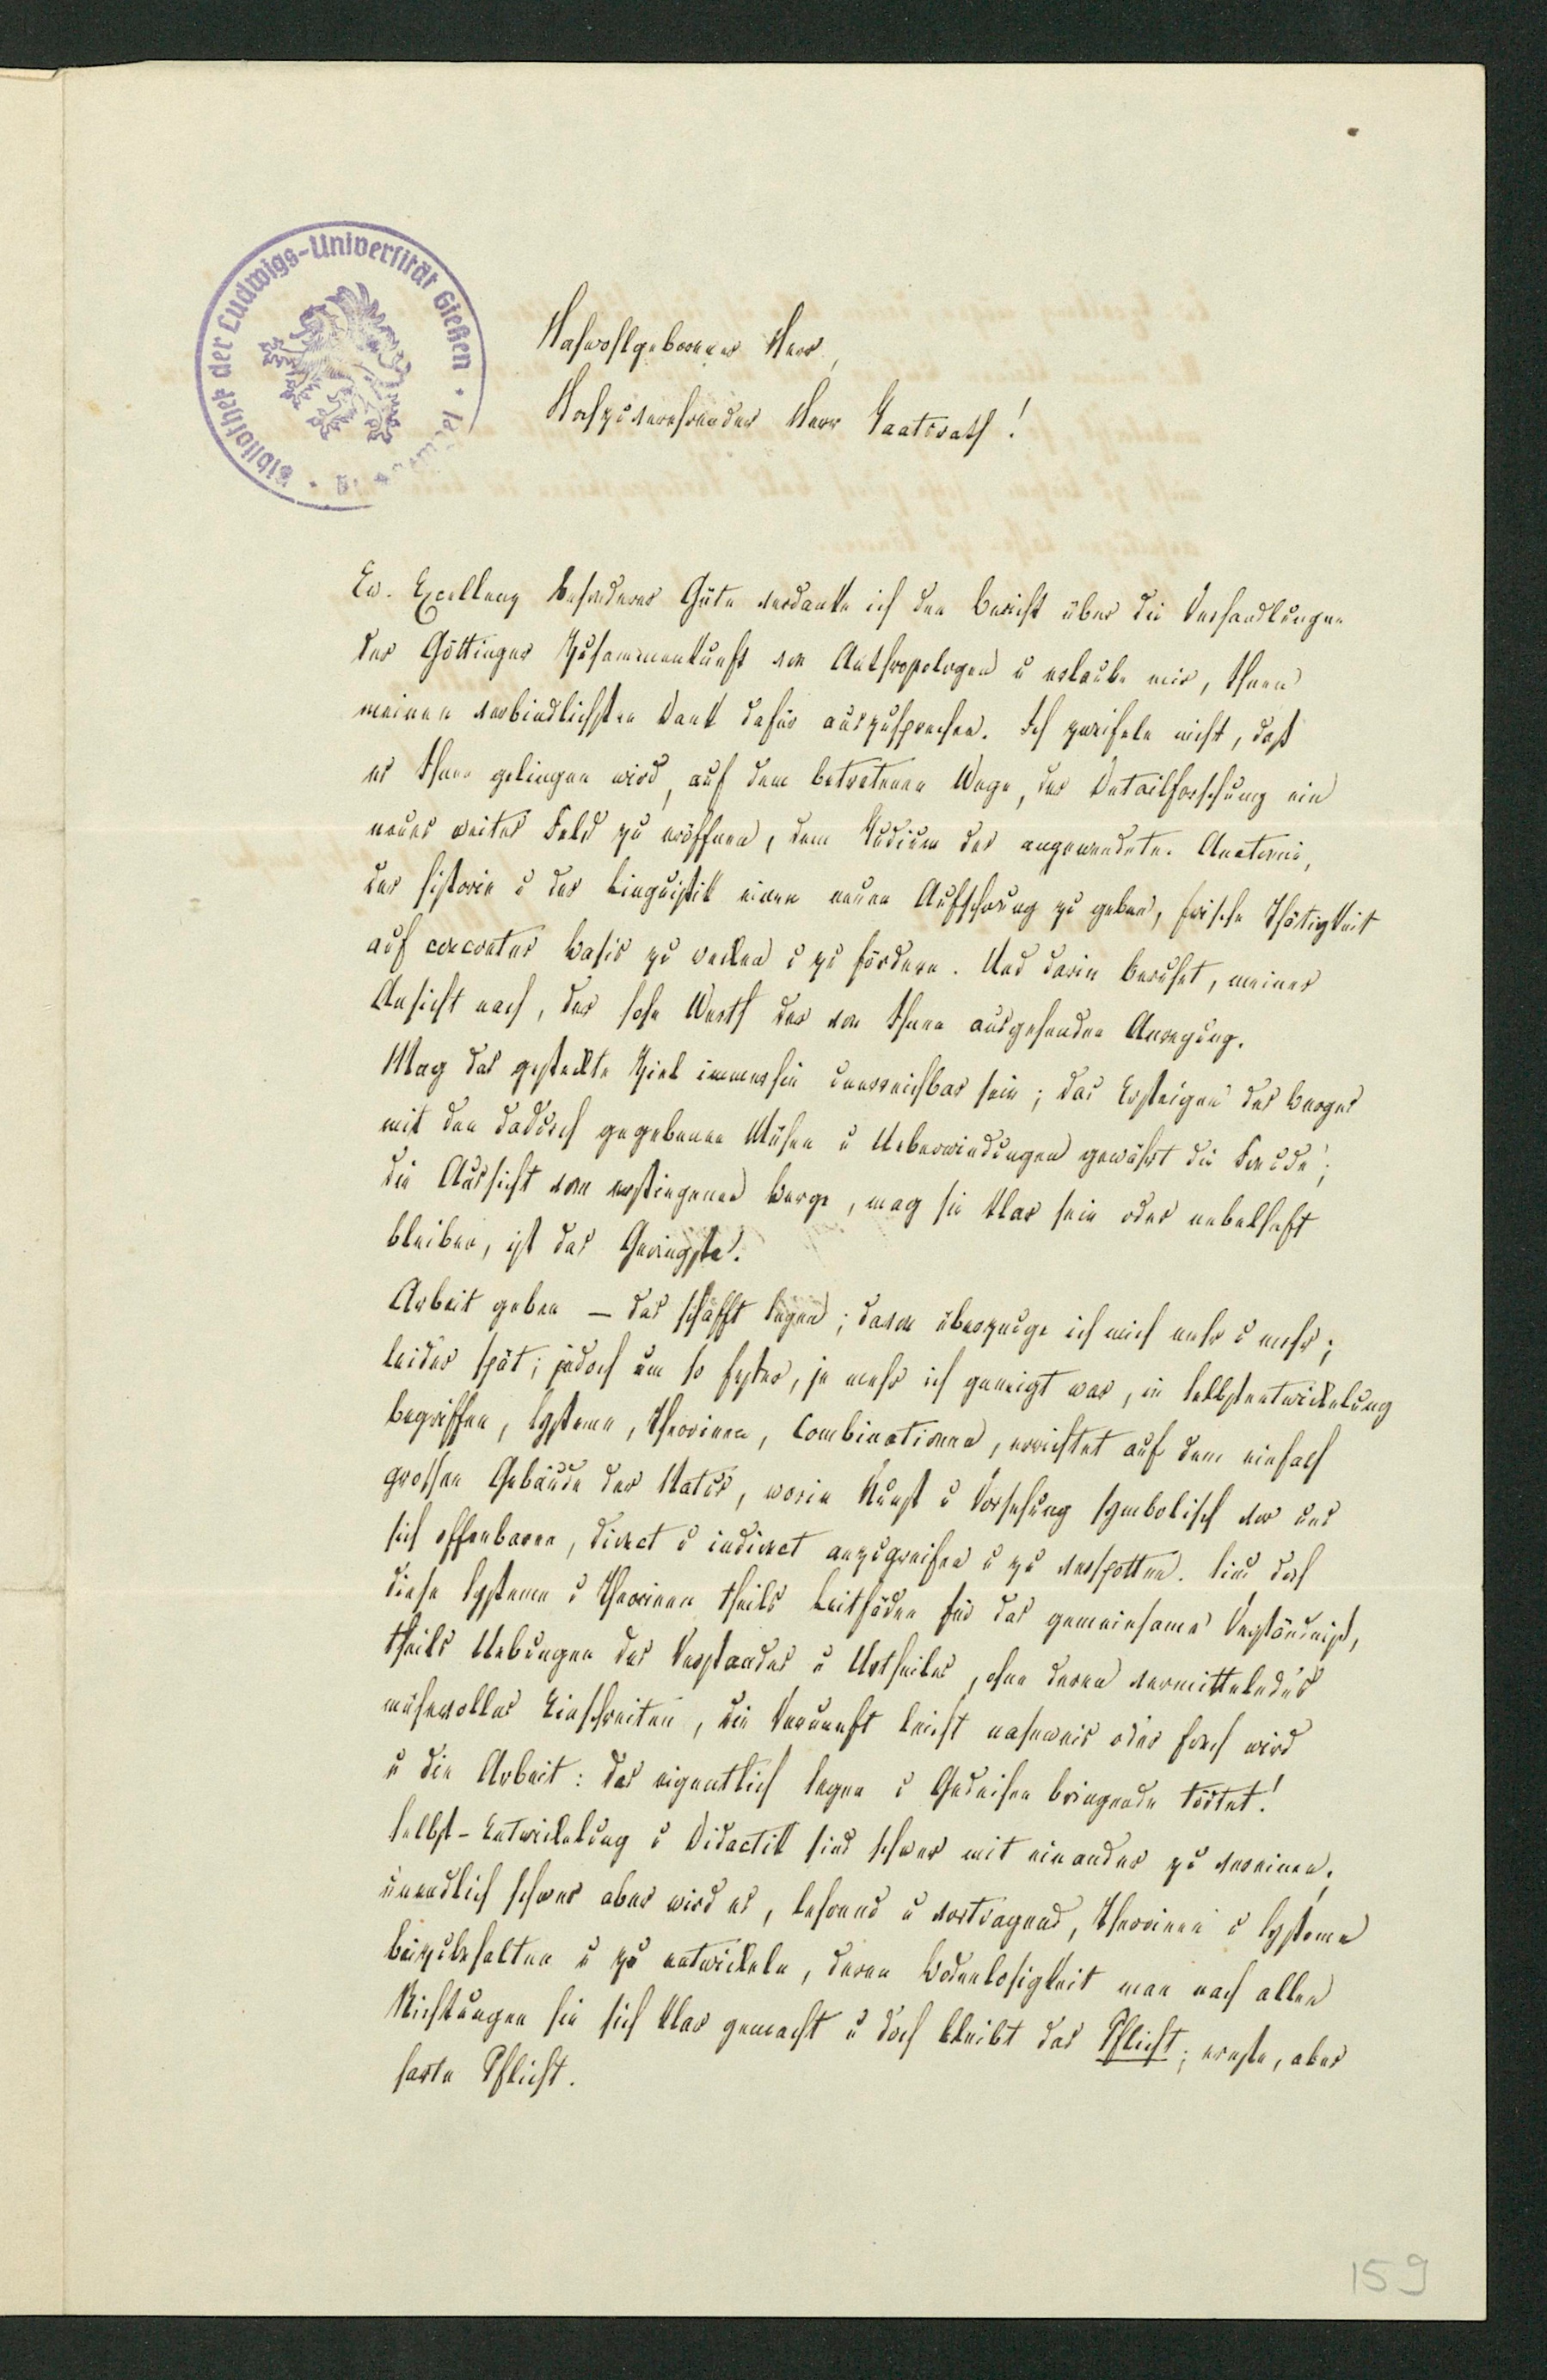 Bibliothek der Ludwigs-Universität Gießen
Hochwohlgeborener Herr,
Hochzuverehrender Herr Staatsrath!
Ew. Excellenz besonderer Güte verdanke ich den Bericht über die Verhandlungen
der Göttinger Zusammenkunft von Anthropologen u erlaube mir, Ihnen
meinen verbindlichsten Dank dafür auszusprechen. Ich zweifele nicht, daß
es Ihnen gelingen wird, auf dem betretenen Wege, der Detailforschung ein
neues weites Feld zu eröffnen, dem Studium der angewendeten Anatomie,
der Historie u der Linguistik einen neuen Aufschwung zu geben, frische Thätigkeit
auf concreter Basis zu wecken u zu fördern. Und darin beruhet, meiner
Ansicht nach, der hohe Werth der von Ihnen ausgehenden Anregung.
Mag das gesteckte Ziel immerhin unerreichbar sein; das Ersteigen des Berges
mit den dadurch gegebenen Mühen u Ueberwindungen gewährt die Freude;
die Aussicht vom erstiegenen Berge, mag sie klar sein oder nebelhaft
bleiben, ist das Geringste.
Arbeit geben – das schafft Segen; davon überzeuge ich mich mehr u mehr;
leider spät; jedoch um so fester, je mehr ich geneigt war, in Selbstentwickelung
begriffen, Systeme, Theorieen, Combinationen, errichtet auf dem einfach
grossen Gebäude der Natur, worin Kunst u Vorsehung symbolisch vor uns
sich offenbaren, direct u indirect anzugreifen u zu verspotten. Sind doch
diese Systeme u Theorieen theils Leitfäden für das gemeinsame Verständniß,
theils Uebungen des Verstandes u Urtheiles, ohne deren vermittelndes
mühevolles Einschreiten, die Vernunft leicht naseweis oder frech wird
u die Arbeit: das eigentlich Segen u Gedeihen bringende tödtet!
Selbst-Entwickelung u Didactik sind schwer mit einander zu vereinen;
unendlich schwer aber wird es, lehrend u vortragend, Theorieen u Systeme
beizubehalten u zu entwickeln, deren Bodenlosigkeit man nach allen
Richtungen hin sich klar gemacht u doch bleibt das Pflicht; ernste, aber
harte Pflicht.
159